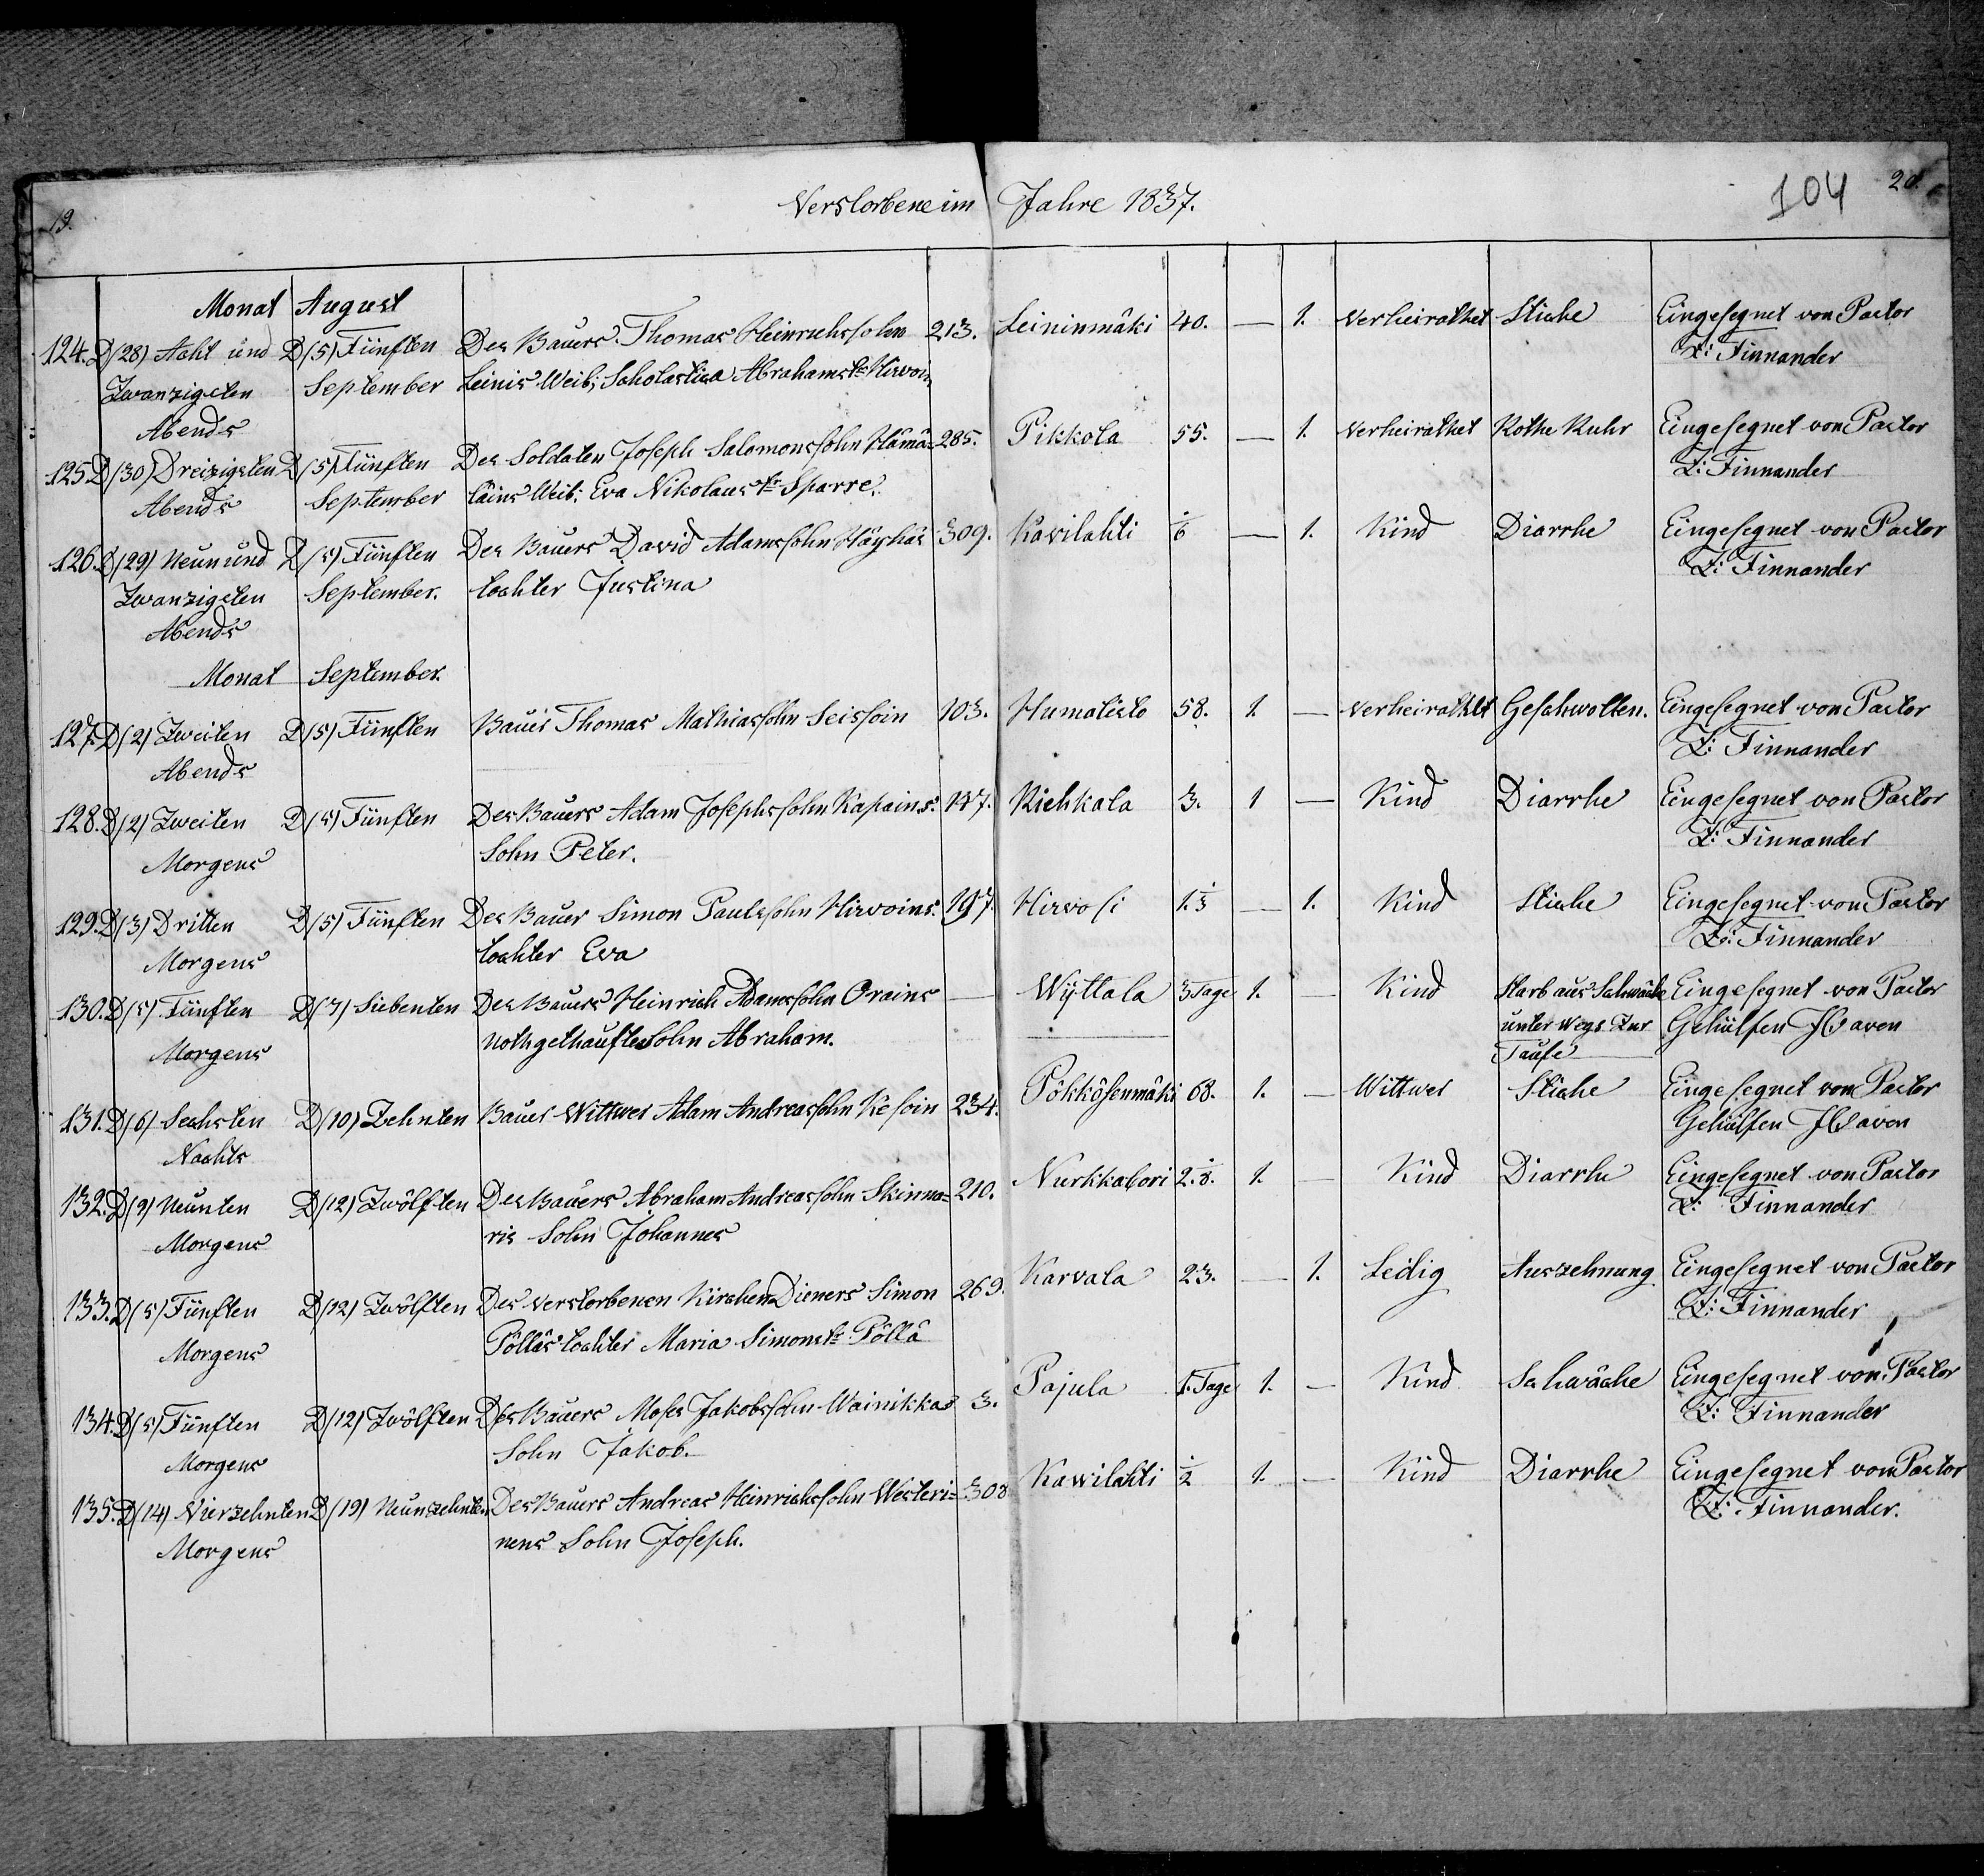 19.
Verstorbene im Jahre 1837.
104
20.
Monat August
124. D (28) Acht und D (5) Fünften Des Bauers Thomas Heinrichssohn 213. Leininmäki 40. — 1. Verheirathet Stiche Eingesegnet von Pastor
Zwanzigsten September Leinis Weib; Scholastica Abrahamstr Hirvoin Z: Finnander
Abends
125. D (30) Dreizigsten D (5) Fünften Des Soldaten Joseph Salomonssohn Hämä= 285. Pikkola 55. — 1. Verheirathet Rothe Ruhr Eingesegnet von Pastor
Abends September läins Weib: Eva Nikolaustr Sparre. Z: Finnander
126. D (29) Neun und D (5) Fünften Des Bauers David Adamssohn Häyhäs 309. Kavilahti 1/6 — 1. Kind Diarrhe Eingesegnet von Pastor
Zwanzigsten September. tochter Justina Z: Finnander
Abends
Monat September.
127. D (2) Zweiten D (5) Fünften Bauer Thomas Mathiassohn Seissoin 103. Humalisto 58. 1. — Verheirathet Geschwollen. Eingesegnet von Pastor
Abends Z: Finnander
128. D (2) Zweiten D (5) Fünften Des Bauers Adam Josephssohn Kapains. 147. Riehkala 3. 1 — Kind Diarrhe Eingesegnet von Pastor
Morgens Sohn Peter. Z: Finnander
129. D (3) Dritten D (5) Fünften Des Bauer Simon Paulssohn Hirvoins. 197. Hirvosi 1. 1/3 — 1. Kind Stiche Eingesegnet von Pastor
Morgens tochter Eva Z: Finnander
130. D (5) Fünften D (7) Siebenten Des Bauers Heinrich Adamssohn Orains — Wÿttala 3 Tage 1. — Kind Starb aus Schwäche Eingesegnet von Pastor
Morgens Nothgethaufte Sohn Abraham. unter Wegs Zur Gehülfen
Taufe
131. D (6) Sechsten D (10) Zehnten Bauer Wittwer Adam Andreassohn Kesoin 234. Pökkösenmäki 68. 1. — Wittwer Stiche Eingesegnet von Pastor
Nachts Gehülfen
132. D (9) Neunten D (12) Zwölften Des Bauers Abraham Andreassohn Skinna= 210. Nurkkabori 2. 1/8. 1. — Kind Diarrhe Eingesegnet von Pastor
Morgens ris Sohn Johannes Z: Finnander
133. D (5) Fünften D (12) Zwölften Des verstorbenen Kirchen Dieners Simon 269. Karvala 23. — 1. Ledig Auszehnung Eingesegnet von Pastor
Morgens Pölläs tochter Maria Simonstr Pöllä Z: Finnander
134. D (5) Fünften D (12) Zwölften Des Bauers Moses Jakobssohn Wainikkas 3. Pajula 1. Tage 1. — Kind Schwäche Eingesegnet von Pastor
Morgens Sohn Jakob. Z: Finnander
135. D (14) Vierzehnten D (19) Neunzehnten Des Bauers Andreas Heinrichssohn Westeri= 308 Kawilahti 1/2 1. — Kind Diarrhe Eingesegnet von Pastor
Morgens nens Sohn Joseph. Z: Finnander.